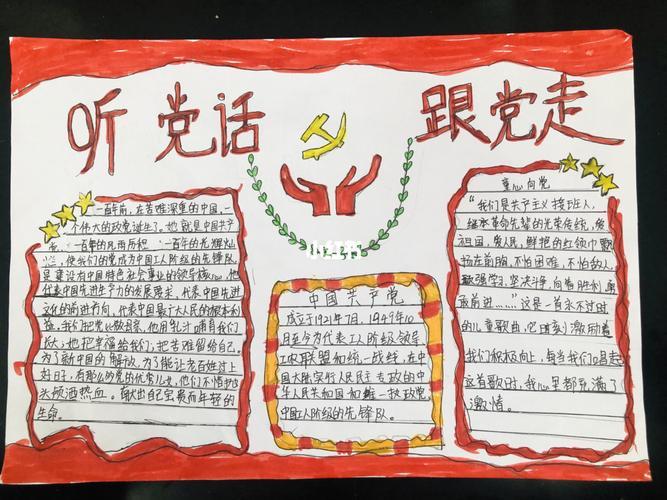 听党话 跟党走
一百年前,在苦难深重的中国,一
个伟大的政党诞生了。她就是中国共产
党。一百年的风雨历程,一百年的光辉灿
烂,使我们的党成为中国工人阶级的先锋队,
是建设有中国特色社会事业的领导核心,她
代表中国先进生产力的发展要求,代表中国先进
文化的前进方向,代表中国最广大人民的根本利
益。我们把党比做母亲,她用乳汁哺育我们
成长;她把幸福给我们;把苦难留给自己。
为了新中国的解放,为了能让老百姓过上
好日子,有那么的党的优秀儿女,他们不惜抛
头颅洒热血。献出自己宝贵而年轻的
生命。
小红书
中国共产党
成立于1921年7月,1949年10
月至今为代表工人阶级领导
工农联盟和统一战线,在中
国大陆实行人民民主专政的中
华人民共和国
执政党,
中国工人阶级的先锋队。
童心向党
“我们是共产主义接班人,
继承革命先辈的光荣传统,爱
祖国,爱人民,鲜艳的红领巾飘
扬在前胸,不怕困难,不怕敌人,
顽强学习,坚决斗争,向着胜利,勇
敢前进……”这是一首永不过时
的儿童歌曲,它时刻激励着
我们积极向上,每当我们唱起
这首歌时,我心里都充满了
激情。